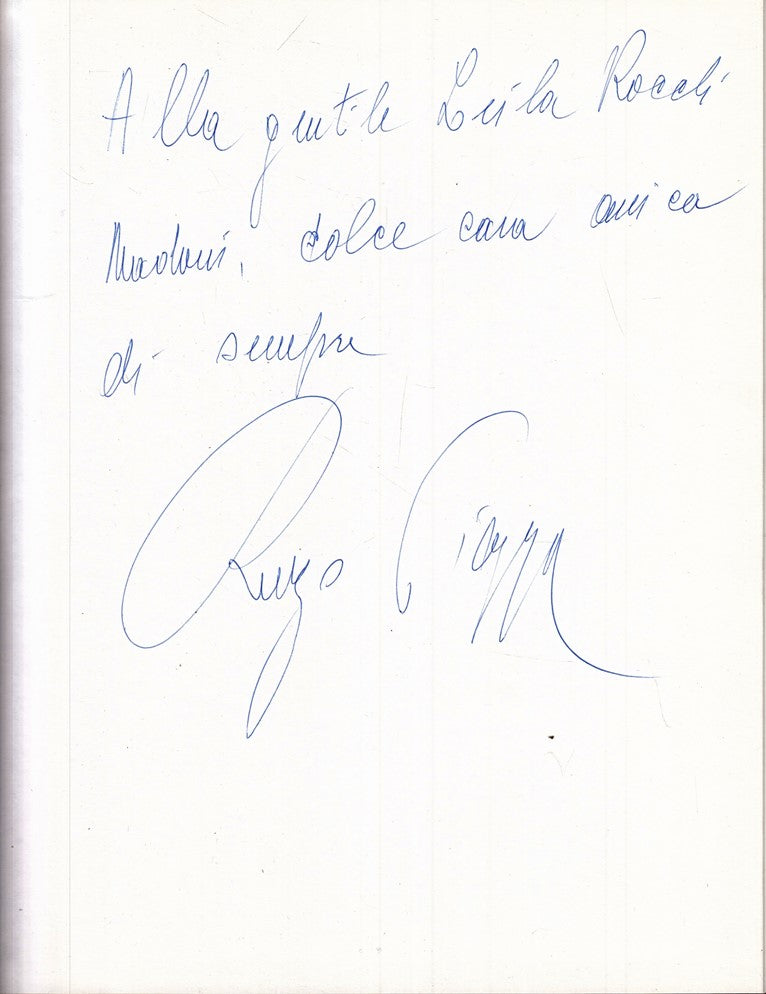 Alla gentile Leila Rocchi
dolce cara amica
di sempre
Renzo Piazza